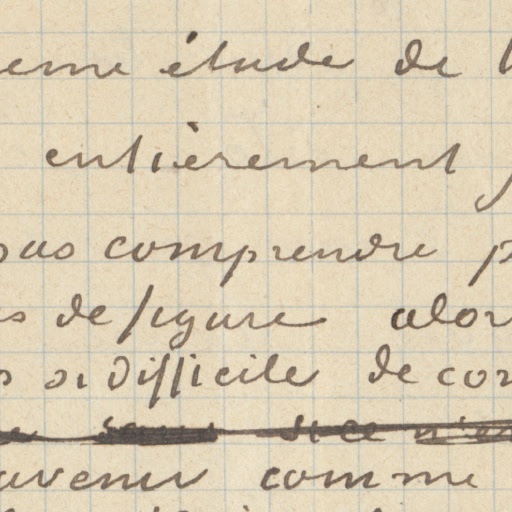 eme étude de l
entièrement
pas comprendre p
es de figure alor
si difficile de com
si ce n'es
avenir comme